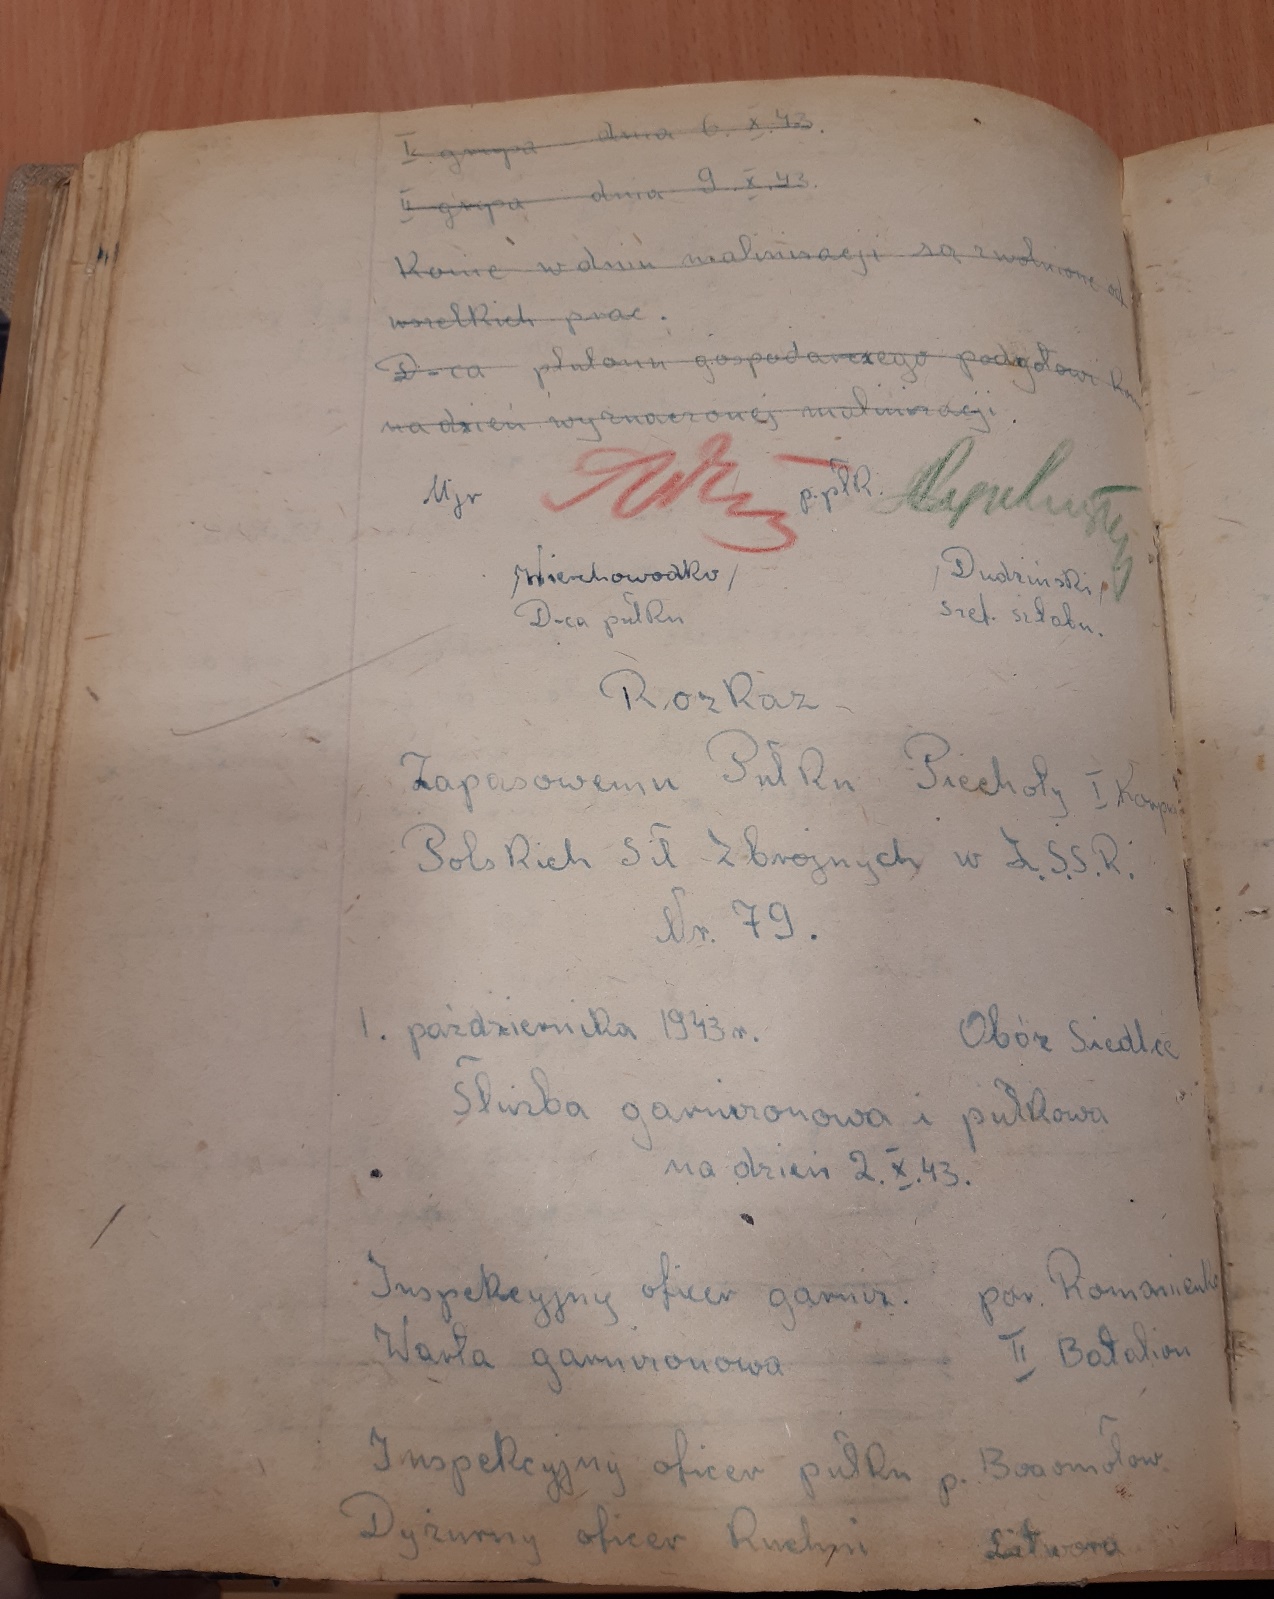 I grupa dnia 6.X.43.
II grupa dnia 9.X.43.
Konie w dniu malinizacji są zwolnione od
wszelkich prac.
D-ca plutonu gospodarczego podgotowi
na dzień wyznaczonej malinizacji.
Mjr p.płk.
/Wierchowodko/ /Dudzinski/
D-ca pułku szef. sztabu.
Rozkaz
Zapasowemu Pułku Piechoty I Korpusu
Polskich Sił Zbrojnych w Z.S.S.R.
Nr. 79.
1. października 1943 r. Obóz Siedlce
Służba garnizonowa i pułkowa
na dzień 2.X.43.
Inspekcyjny oficer garniz. por. Romanienko
Warta garnizonowa II Batalion
Inspekcyjny oficer pułku p.
Dyżurny oficer Kuchni Litwora